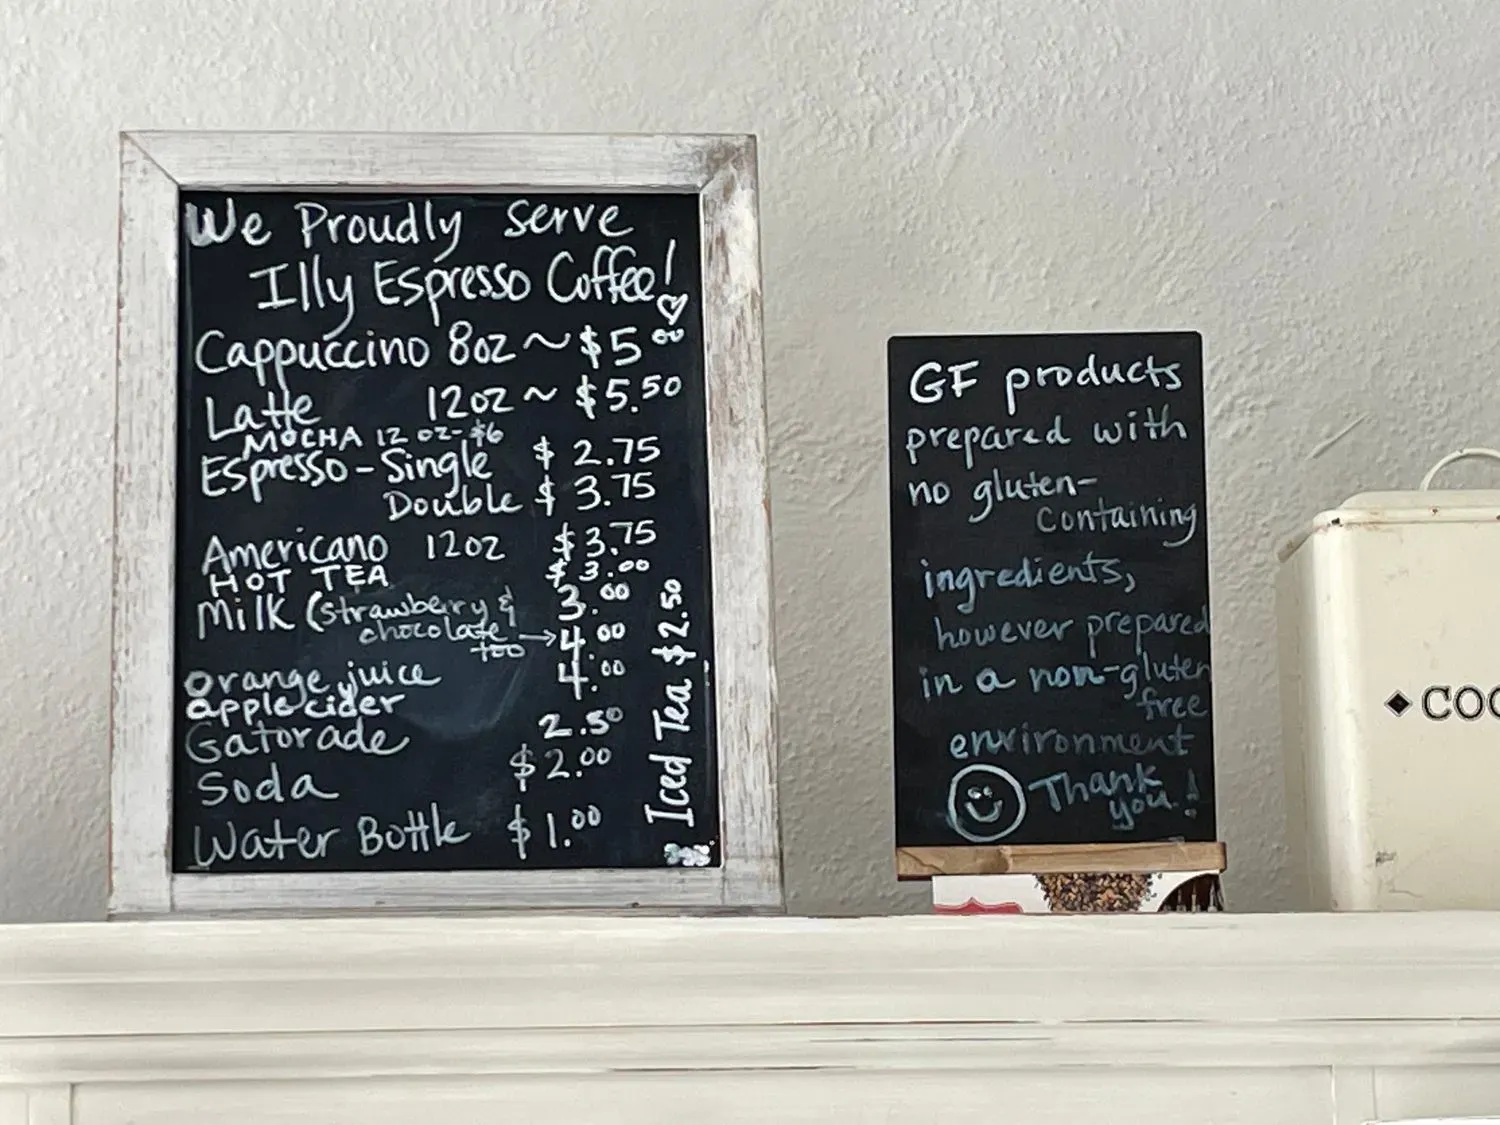 We Proudly Serve
Illy Espresso Coffee!
Cappuccino 8oz ~ $5.00
Latte 12oz ~ $5.50
MOCHA 12 oz- $6
Espresso - Single $ 2.75
Double $ 3.75
Americano 12oz $3.75
HOT TEA $3.00
Milk (strawberry & 3.00
chocolate too → 4.00
orange juice 4.00
apple cider
Gatorade 2.50
Soda $2.00
Water Bottle $1.00
Iced Tea $2.50
GF products
prepared with
no gluten-
containing
ingredients,
however prepared
in a non-gluten
free
environment
Thank
you!